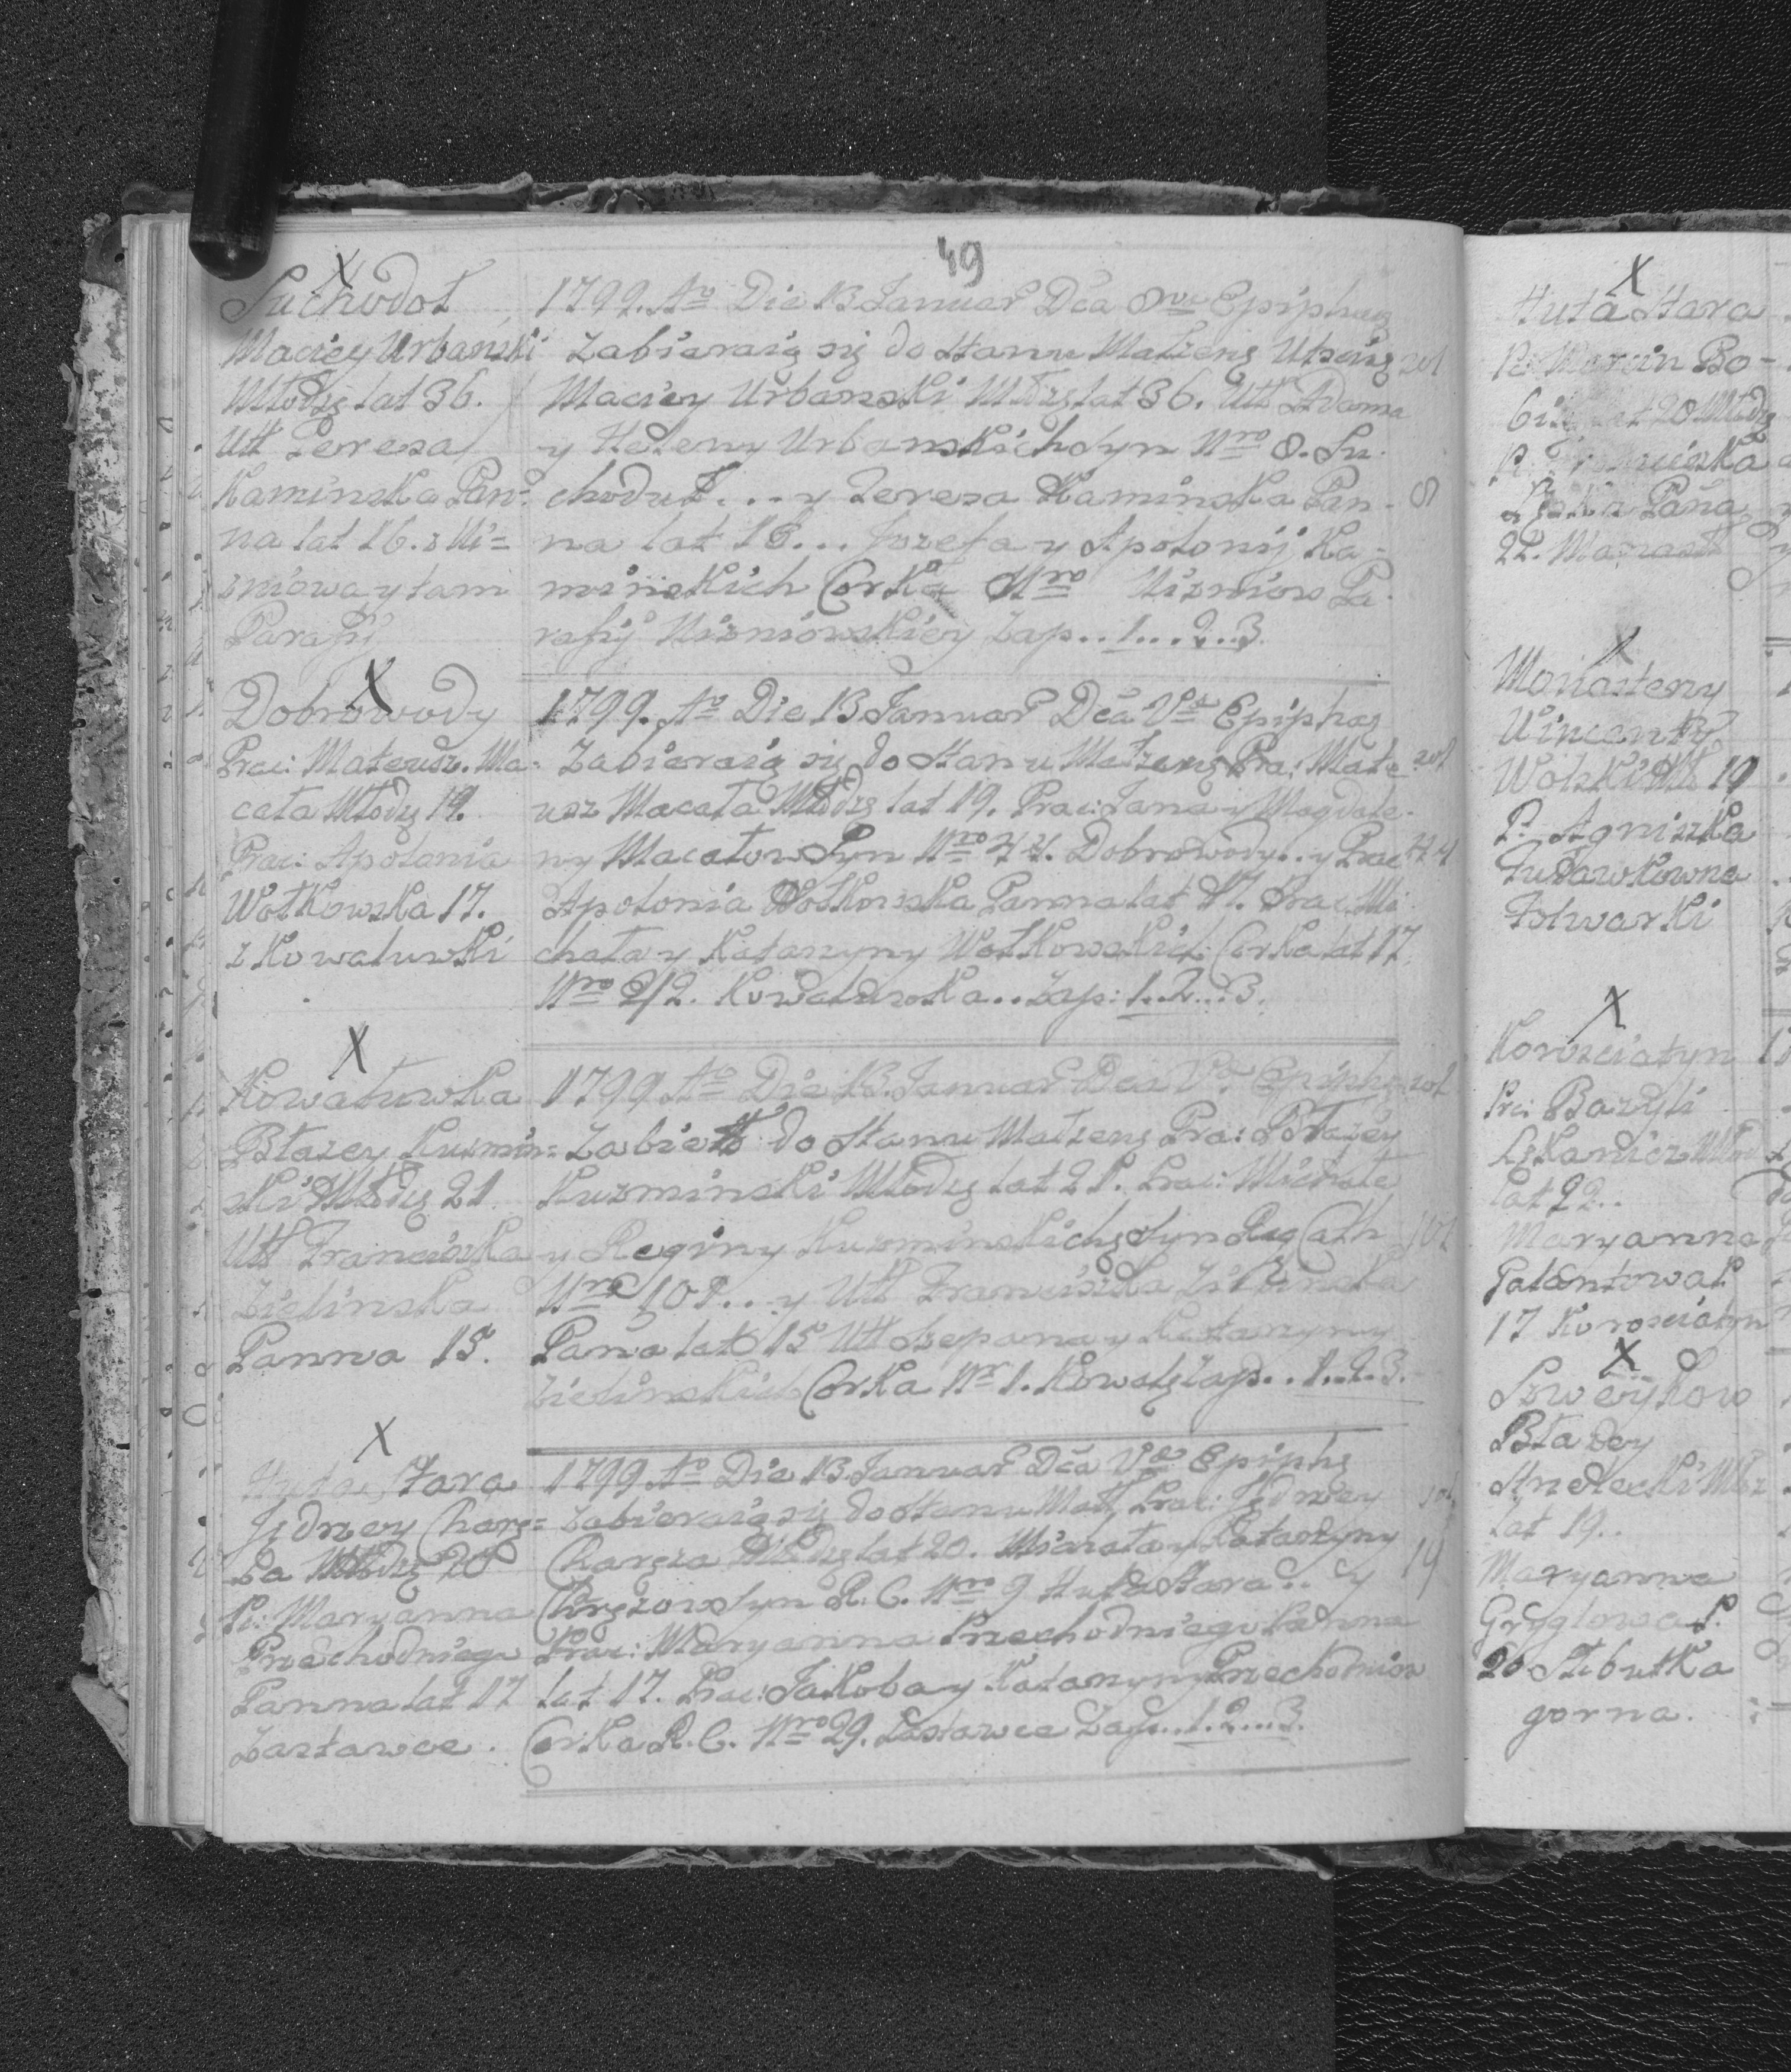 49
Suchodoł
Maciey Urbanski
Młodzę lat 36.
Utt Teresa
Kaminska Pan=
na lat 16. z Ui=
zniowa y tam
Parafij
1799. Aº Die 13 Januar Dca Epiphaę
Zabieraią się do Stanu Małżenę Utsciwę
Maciey Urbanski Młdzę lat 36. Utt Adama
y Heleny Urbanskich Syn Nro 8. Su-
choduł... y Teresa Kaminska Pan-
na lat 16... Jozefa y Apolonij Ka-
minskich Corka Nro Uizniow Pa-
rafij Uizniowskiey Zap.. 1... 2.. 3.
8
Dobrowody
Prac: Mateusz. Ma=
cała Młodzę 19.
Prac: Apolonia
Wołkowska 17.
z Kowaluwki
1799. Aº Die 13 Januar Dca Vª Epiphaę
Zabieraią się do Stanu Małżenę Pra: Mate
usz Macała Młodzę lat 19. Prac: Jana y Magdale-
ny Macałow Syn Nro 44. Dobrowody.. y Prac
Apolonia Wołkowska Panna lat 17. Prac. Mi
chała y Katarzyny Wołkowskich Corka lat 17
Nro 212. Kowaluwka.. Zap: 1.. 2... 3.
44
Kowaluwka
Błazey Kuzmin=
ski Młodzę 21
Utt Franciszka
Zielinska
Panna 15.
1799 Aº Die 13. Januar Dca Vª Epiphę
Zabier do Stanu Małżenę Pra: Błazey
Kuzminski Młodzę lat 21. Prac: Michała
y Reginy Kuzminskich Syn Rę Cath
Nro 101... y Utt Franciszka Zielinska
Pana lat 15 Utt Szepana y Katarzyny
Zielinskich Corka Nr 1. Kowalę Zap.. 1.. 2. 3.
101
Huta Stara
Jędrzey Charę=
za Młodzę 20
Pr: Maryanna
Przechodniego
Panna lat 17
Zastawce.
1799 Aº Die 13. Januar Dca Vª Epiphę
Zabieraią się do Stanu Małż Prac: Jędrzey
Charęza Młdzę lat 20. Michała y Katarzyny
Chręzow Syn R. C. Nro 9 Huta Stara.. y
Prac: Maryanna Przechodniego Panna
lat 17. Prac: Jakoba y Katarzyny Przechodniow
Corka R. C. Nro 29. Zastawce Zap.. 1. 2... 3.
Huta Stara
P: Marcin Bo-
22.
Monastery
Wincenty
Wolski Mł 19
P. Agniszka
Folwarki
Korosciatyn
Pra: Bazyli
lat 22..
Maryanna
17 Korosciatyn
Szweykow
Błazey
lat 19..
Maryanna
Gryglowa P.
20 Słobutka
gorna.